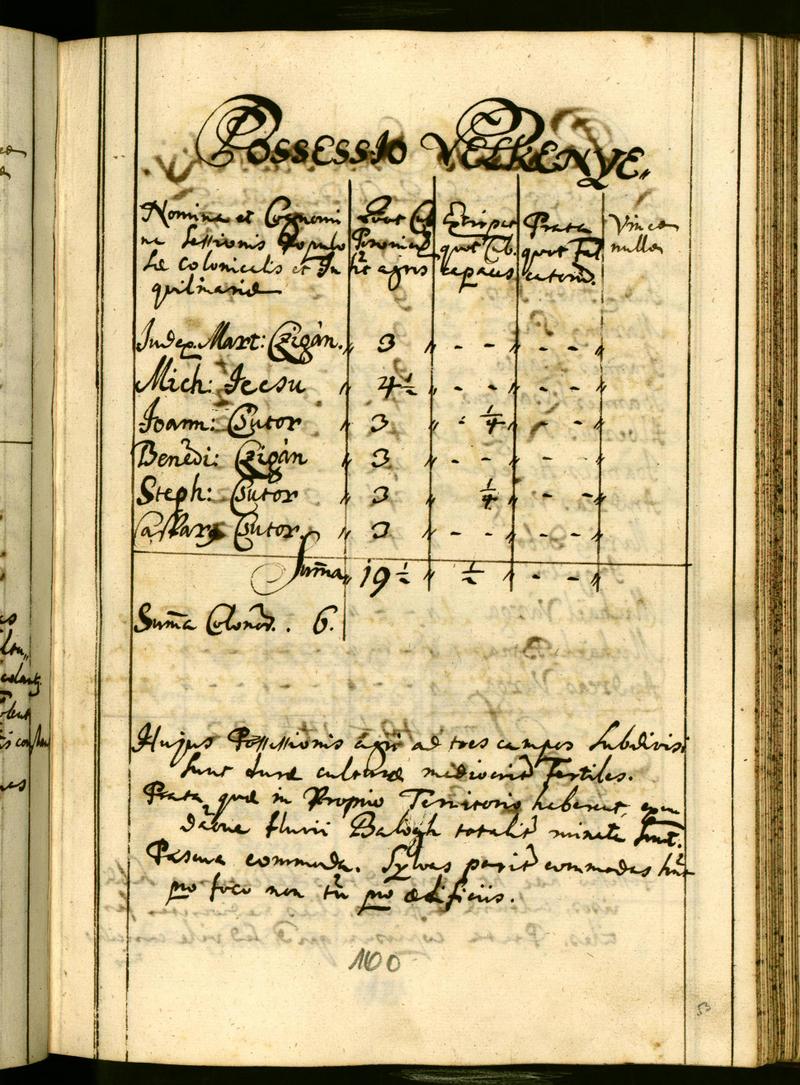 Possessio Velkenye.
Nomina et Cognomi
na Sessionis Populo
sæ colonicalis et In
quilinariæ
Quot Cub.
tit agros
Extirpat
quot Cub.
capaces
Prata
quot Fal
catorũ.
Vinea
nulla
Judex Mart: Czigàn. „ 3 „ - - „ - - „
Mich: Jeesu „ 4 1/2 „ - - „ - - „
Joann: Csutor „ 3 „ - 1/4 „ - - „
Benedi: Czigàn „ 3 „ - - „ - - „
Steph: Csutor „ 3 „ 1/4 „ - - „
Caspary Csutor. „ 3 „ - - „ - - „
Sum̃a „ 19 1/2 „ 1/2 „ - - „
Sum̃a Colonor. . 6.
Hujus Possessionis agri ad tres campos subdivisi
sunt duræ culturæ mediocrit Fertiles.
Prata, quæ in Proprio Territorio haberent, exun
da͠oe fluvii Balogh totalit minata sunt.
Pascua commoda. Sylvas parit commodas hnt
pro foco non tñ pro ædificiis.
100
53